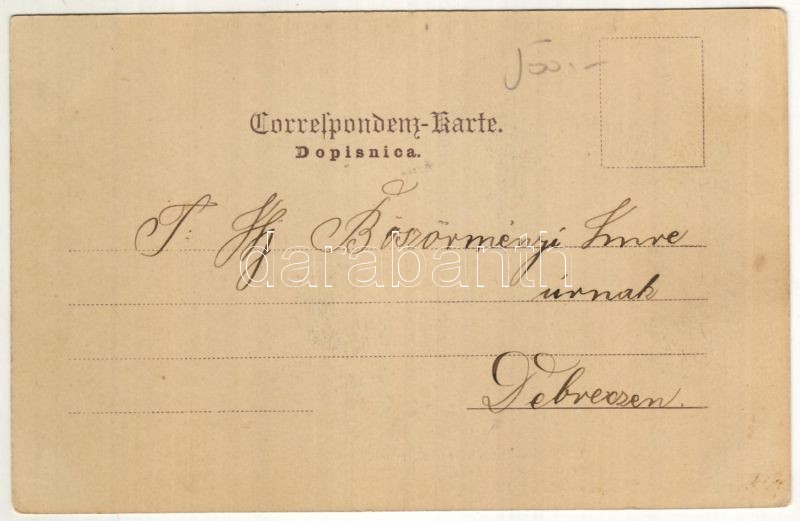 500.-
Correspondenz-Karte.
Dopisnica.
T: Ifj Böszörményi Imre
úrnak
darabanth
Debreczen.